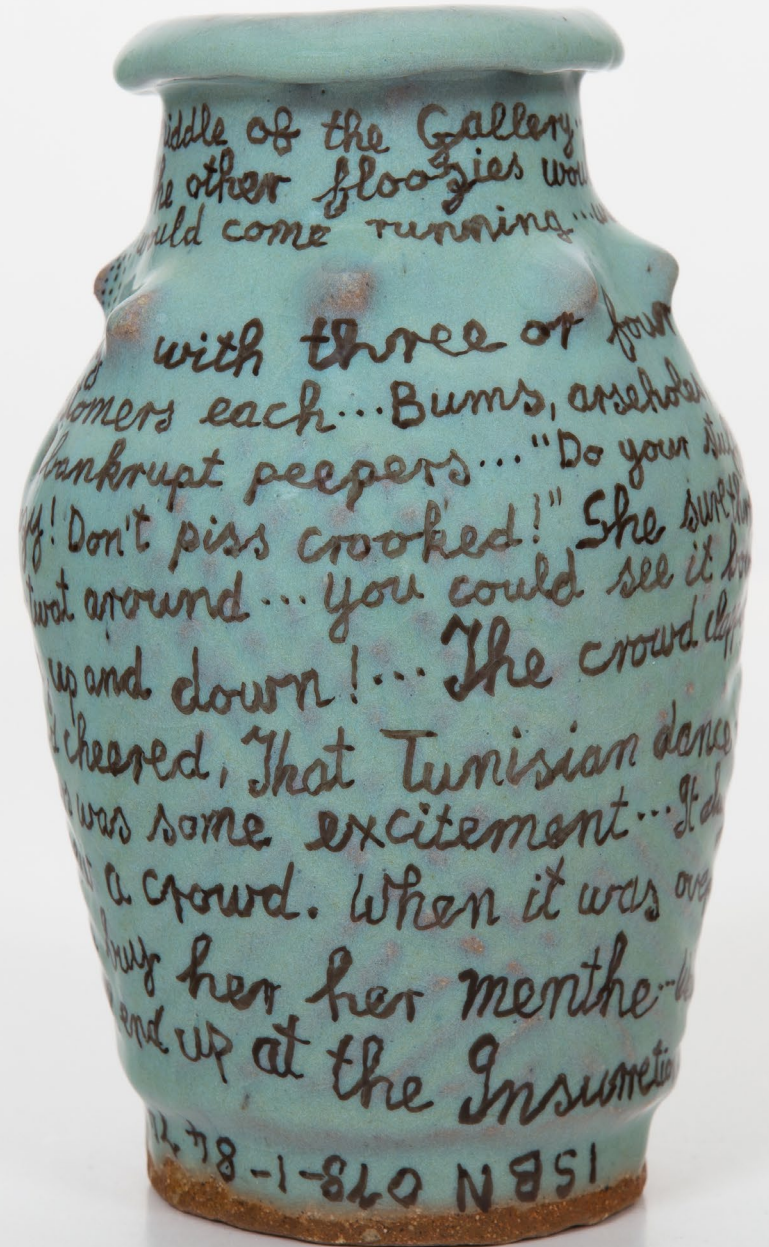 iddle of the Gallery..
he other floozies wou
ould come running...
with three or four
tomers each...Bums, arsehole
bankrupt peepers..."Do your
gy! Don't piss crooked!" She sure
twat around... you could see it
up and down!... The crowd clapp
cheered, That Tunisian dance
was some excitement... It al
a crowd. When it was over
buy her her menthe...
end up at the Insurrectio
ISBN 078-1-84